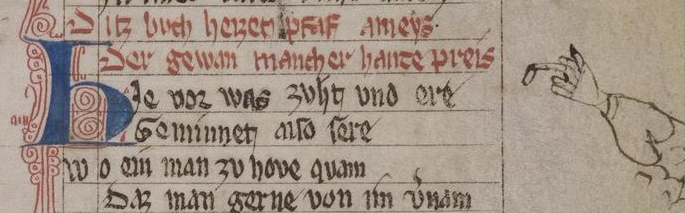 Ditz buch heizet pfaf ameys.
Der gewan mancher hande preis
Hie vor was zvht vnd ere
Geminnet also sere
Wo ein man zv hove quam
Daz man gerne von im v̓nam